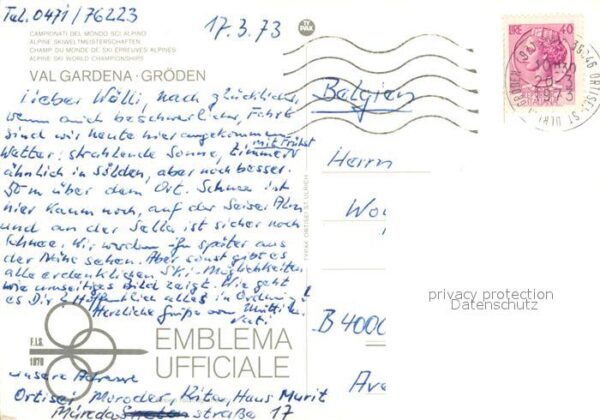 Tel. 0471/76223
17.3.73
CAMPIONATI DEL MONDO SCI ALPINO
ALPINE SKIWELTMEISTERSCHAFTEN
CHAMP DU MONDE DE SKI ÉPREUVES ALPINES
ALPINE SKI WORLD CHAMPIONSHIPS
VAL GARDENA · GRÖDEN
Lieber Wölli, nach glücklicher,
wenn auch beschwerlicher, Fahrt
sind wir heute hier angekommen.
Wetter: strahlende Sonne, Zimmer mit Frühst
ähnlich in Sölden, aber noch besser.
50 m über dem Ort. Schnee ist
hier kaum noch, auf der Seiser Alm
und an der Sella ist sicher noch
Schnee. Wir werden ihn später aus
der Nähe sehen. Aber sonst gibt es
alle erdenklichen Ski-Möglichkeiten
wie umseitiges Bild zeigt. Wie geht
es Dir? Hoffentlich alles in Ordnung!
Herzliche Grüße von Mutti.
Vati
F.I.S.
1970
EMBLEMA
UFFICIALE
unsere Adresse
Ortisei, Moroder, Rita, Haus Murit
Mureda straße 17
TYPAK
TYPAK ORTISEI ST. ULRICH
LIRE 40
39046 ORTISEI-ST. ULRICH
20.3
1973
Belgien
Herrn
Wo
B 4000
Ave
privacy protection
Datenschutz